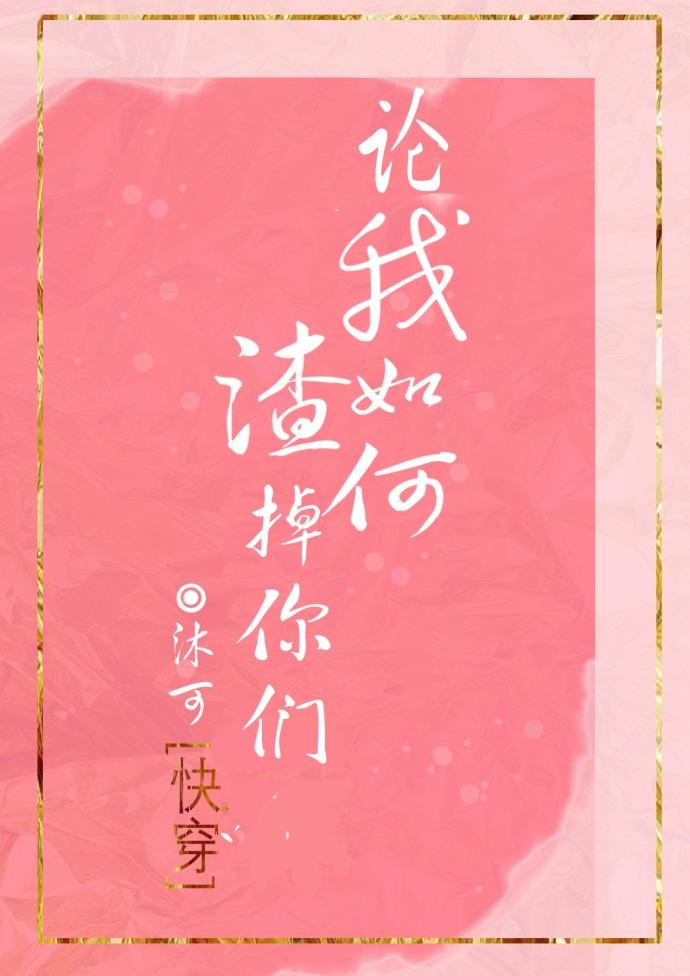 论我如何
渣掉你们
◎沐可
[快穿]